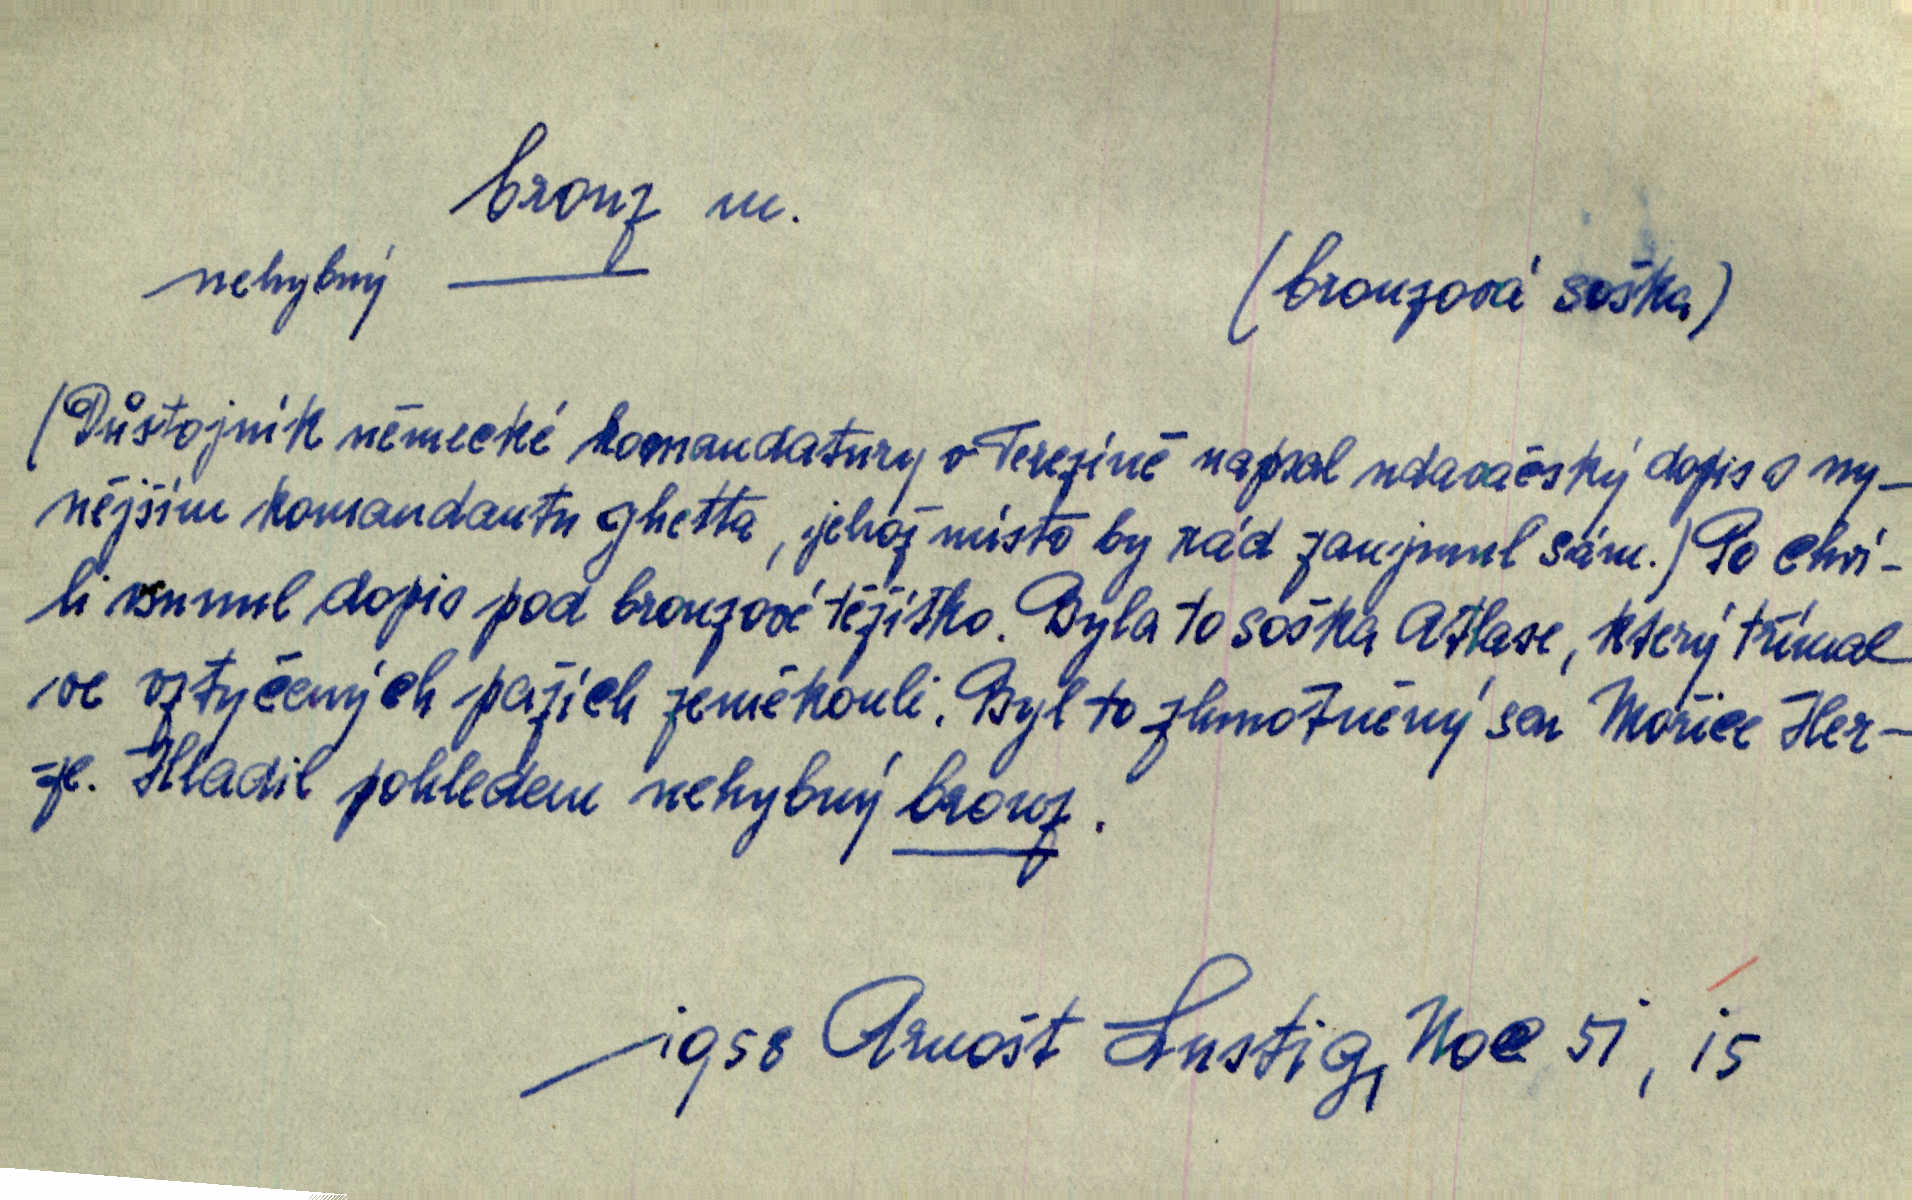 bronz m.
nehybný
(bronzová soška)
(Důstojník německé komandatury v Terezíně napsal udavačský dopis o ny-
nějším komandantu ghetta, jehož místo by rád zaujmul sám.) Po chví-
li vsunul dopis pod bronzové těžítko. Byla to soška Atlase, který třímal
ve vztyčených pažích zeměkouli. Byl to zhmotněný sen Mořice Her-
ze. Hladil pohledem nehybný bronz.
1958 Arnošt Lustig, Noc 51, 15